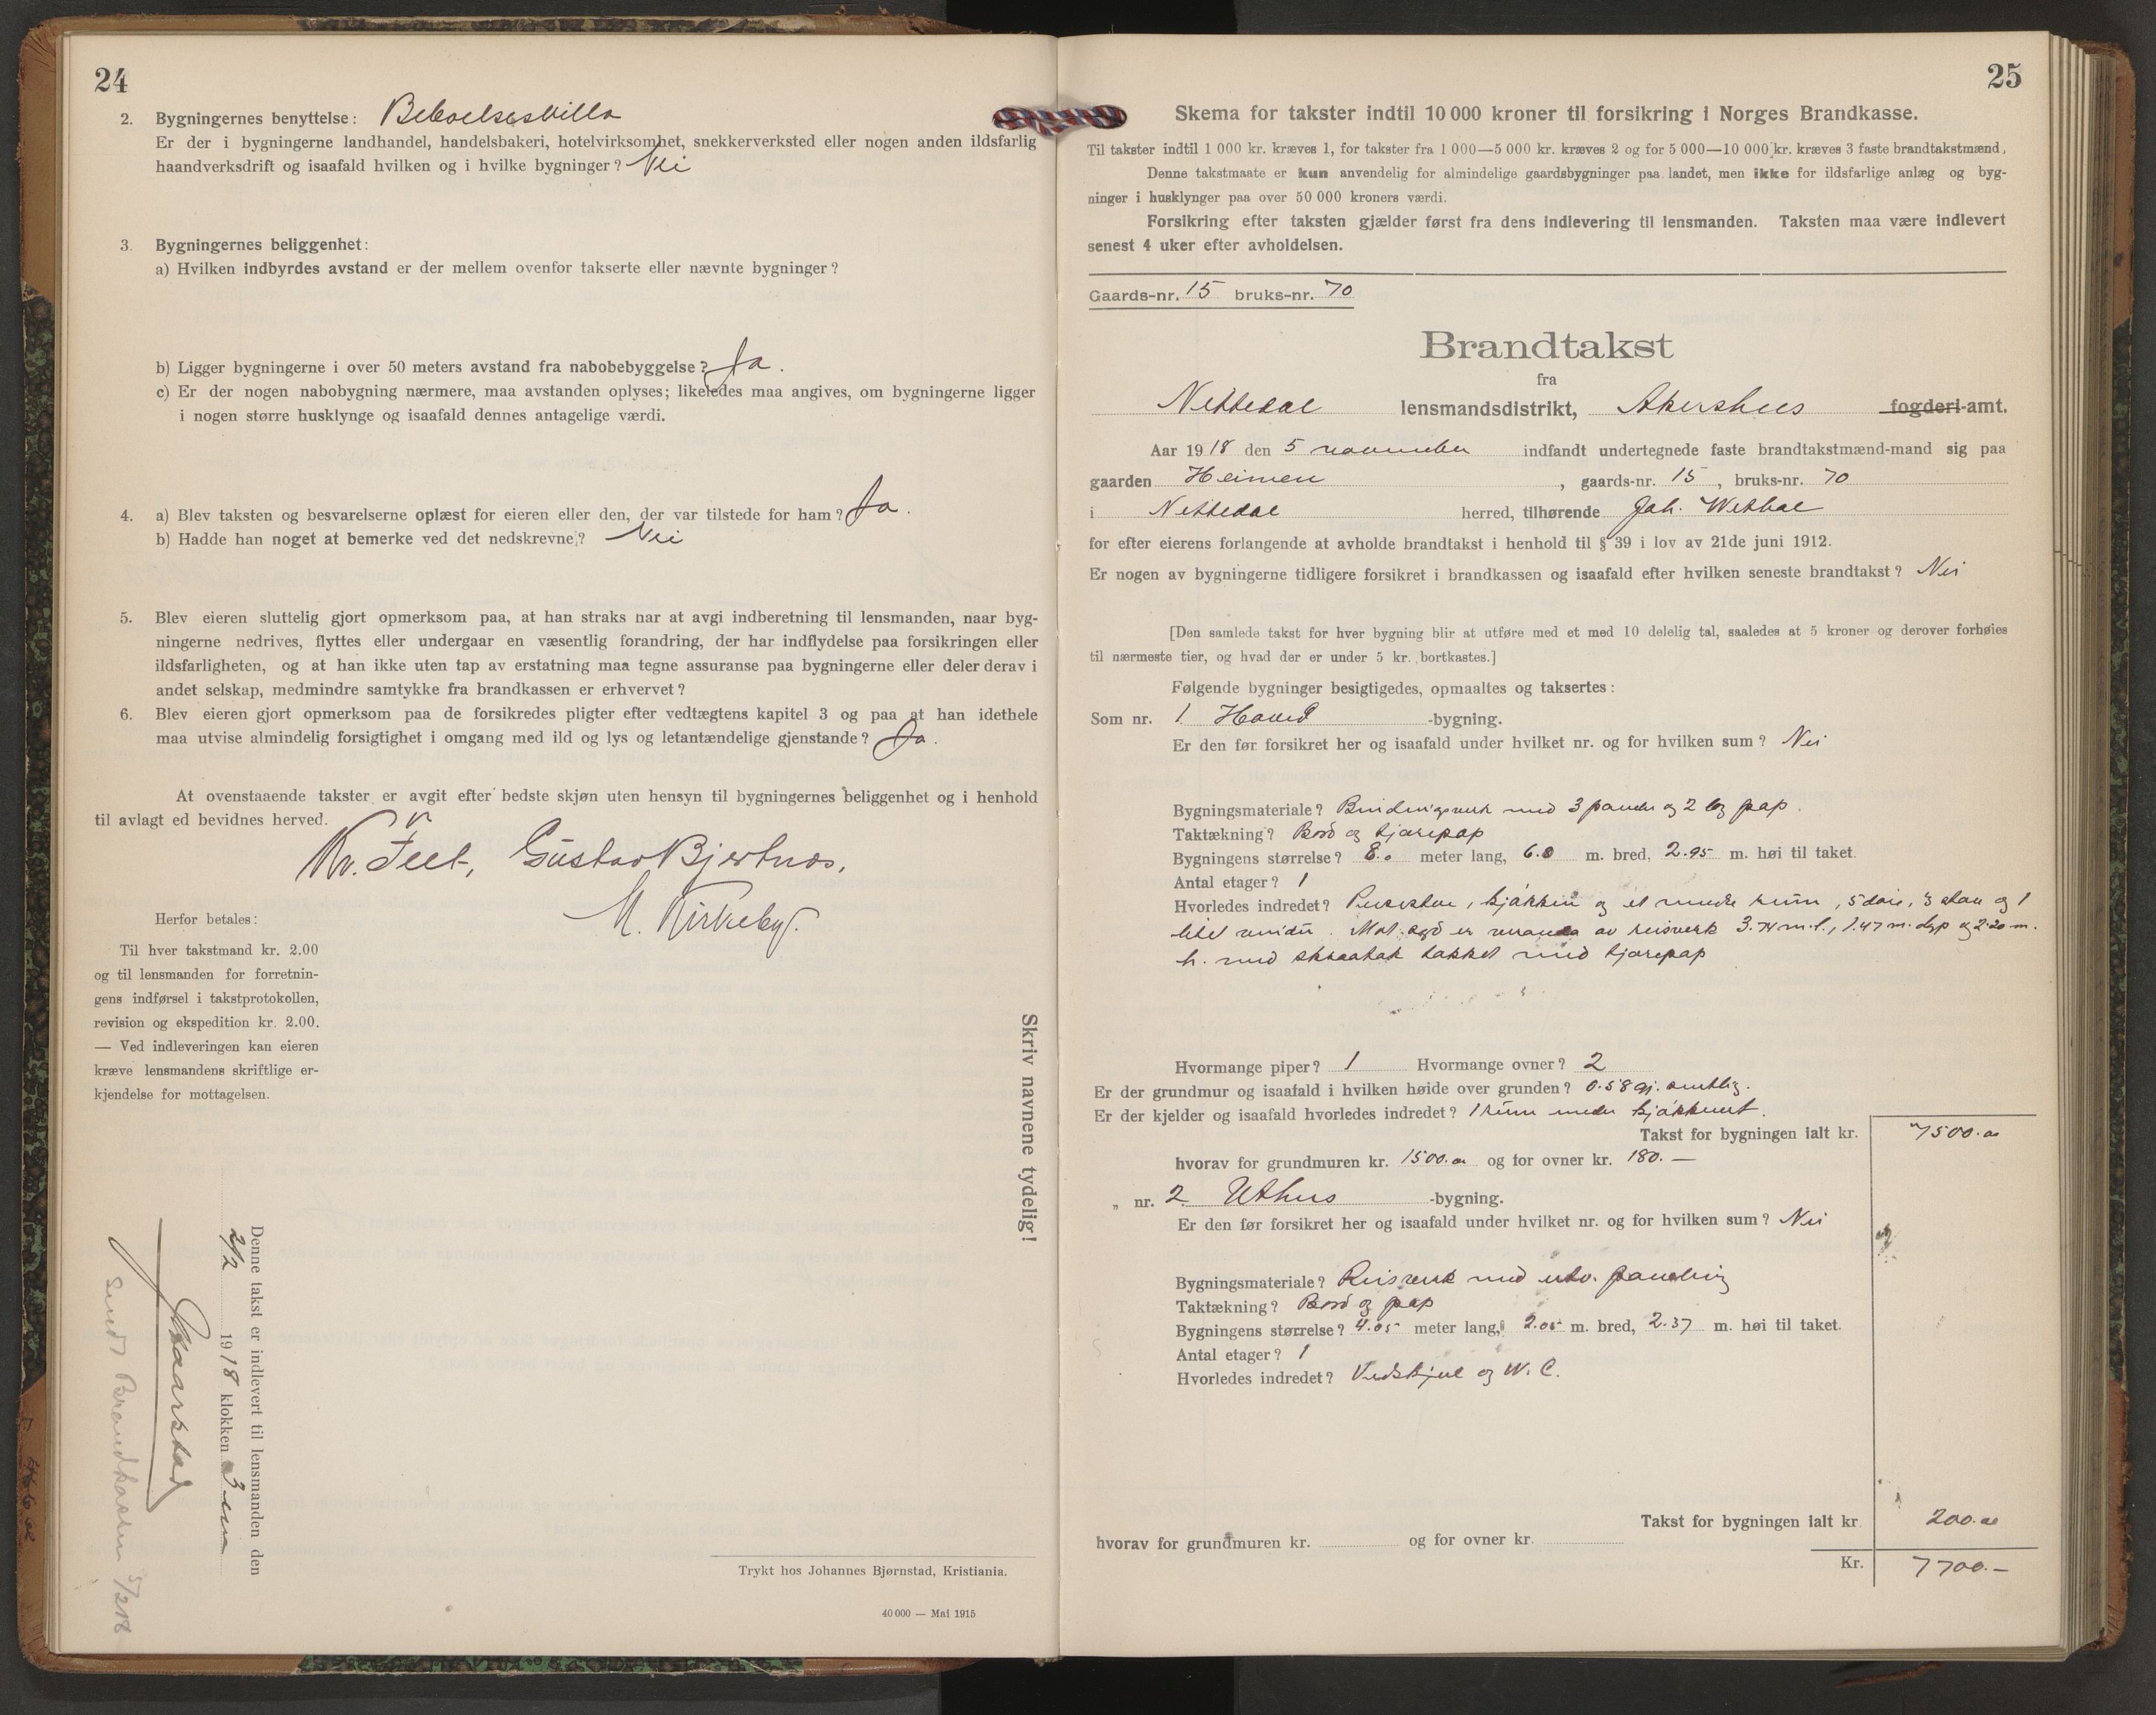 24
2. Bygningernes benyttelse: Beboelsesvilla
Er der i bygningerne landhandel, handelsbakeri, hotelvirksomhet, snekkerverksted eller nogen anden ildsfarlig
haandverksdrift og isaafald hvilken og i hvilke bygninger? Nei
3. Bygningernes beliggenhet:
a) Hvilken indbyrdes avstand er der mellem ovenfor takserte eller nævnte bygninger?
b) Ligger bygningerne i over 50 meters avstand fra nabobebyggelse? Ja.
c) Er der nogen nabobygning nærmere, maa avstanden oplyses; likeledes maa angives, om bygningerne ligger
i nogen større husklynge og isaafald dennes antagelige værdi.
4. a) Blev taksten og besvarelserne oplæst for eieren eller den, der var tilstede for ham? Ja.
b) Hadde han noget at bemerke ved det nedskrevne? Nei
5. Blev eieren sluttelig gjort opmerksom paa, at han straks nar at avgi indberetning til lensmanden, naar byg-
ningerne nedrives, flyttes eller undergaar en væsentlig forandring, der har indflydelse paa forsikringen eller
ildsfarligheten, og at han ikke uten tap av erstatning maa tegne assuranse paa bygningerne eller deler derav i
andet selskap, medmindre samtykke fra brandkassen er erhvervet?
6. Blev eieren gjort opmerksom paa de forsikredes pligter efter vedtægtens kapitel 3 og paa at han idethele
maa utvise almindelig forsigtighet i omgang med ild og lys og letantændelige gjenstande? Ja.
At ovenstaaende takster er avgit efter bedste skjøn uten hensyn til bygningernes beliggenhet og i henhold
til avlagt ed bevidnes herved.
Kr. Feet, Gustav Bjertnæs,
M. Kirkeby.
Herfor betales:
Til hver takstmand kr. 2.00
og til lensmanden for forretnin-
gens indførsel i takstprotokollen,
revision og ekspedition kr. 2.00.
— Ved indleveringen kan eieren
kræve lensmandens skriftlige er-
kjendelse for mottagelsen.
Skriv navnene tydelig!
Denne takst er indlevert til lensmanden den
2/12 1918 klokken 3 em
Sendt Brandkassen 5/12 18
Trykt hos Johannes Bjørnstad, Kristiania.
40 000 — Mai 1915
25
Skema for takster indtil 10 000 kroner til forsikring i Norges Brandkasse.
Til takster indtil 1 000 kr. kræves 1, for takster fra 1 000—5 000 kr. kræves 2 og for 5 000—10 000 kr. kræves 3 faste brandtakstmænd,
Denne takstmaate er kun anvendelig for almindelige gaardsbygninger paa landet, men ikke for ildsfarlige anlæg og byg-
ninger i husklynger paa over 50 000 kroners værdi.
Forsikring efter taksten gjælder først fra dens indlevering til lensmanden. Taksten maa være indlevert
senest 4 uker efter avholdelsen.
Gaards-nr. 15 bruks-nr. 70
Brandtakst
fra
Nittedal lensmandsdistrikt, Akershus fogderi-amt.
Aar 1918 den 5 november indfandt undertegnede faste brandtakstmænd-mand sig paa
gaarden Heimen, gaards-nr. 15, bruks-nr. 70
i Nittedal herred, tilhørende Joh. Wethal
for efter eierens forlangende at avholde brandtakst i henhold til § 39 i lov av 21de juni 1912.
Er nogen av bygningerne tidligere forsikret i brandkassen og isaafald efter hvilken seneste brandtakst? Nei
[Den samlede takst for hver bygning blir at utføre med et med 10 delelig tal, saaledes at 5 kroner og derover forhøies
til nærmeste tier, og hvad der er under 5 kr. bortkastes.]
Følgende bygninger besigtigedes, opmaaltes og taksertes:
Som nr. 1 Hoved -bygning.
Er den før forsikret her og isaafald under hvilket nr. og for hvilken sum? Nei
Bygningsmateriale? Bindingsverk med 3 paneler og 2 lag pap.
Taktækning? Bord og tjærepap
Bygningens størrelse? 8.0 meter lang, 6.0 m. bred, 2.95 m. høi til taket.
Antal etager? 1
Hvorledes indredet? Peisestue, kjøkken og et mindre rum, 5 døre, 3 store og 1
litet vindu. Mot syd er veranda av reisverk 3.74 m. l., 1.47 m. dyp og 2.20 m.
h. med skraatak tækket med tjærepap
Hvormange piper? 1 Hvormange ovner? 2
Er der grundmur og isaafald i hvilken høide over grunden? 0.58 gj. snitlig.
Er der kjelder og isaafald hvorledes indredet? 1 rum under kjøkkenet.
Takst for bygningen ialt kr. 7500.00
hvorav for grundmuren kr. 1500.00 og for ovner kr. 180.—
„ nr. 2 Uthus -bygning.
Er den før forsikret her og isaafald under hvilket nr. og for hvilken sum? Nei
Bygningsmateriale? Reisverk med utv. paneling
Taktækning? Bord og pap
Bygningens størrelse? 4.05 meter lang, 2.05 m. bred, 2.37 m. høi til taket.
Antal etager? 1
Hvorledes indredet? Vedskjul og W. C.
Takst for bygningen ialt kr. 200.00
hvorav for grundmuren kr. og for ovner kr.
Kr. 7700.—